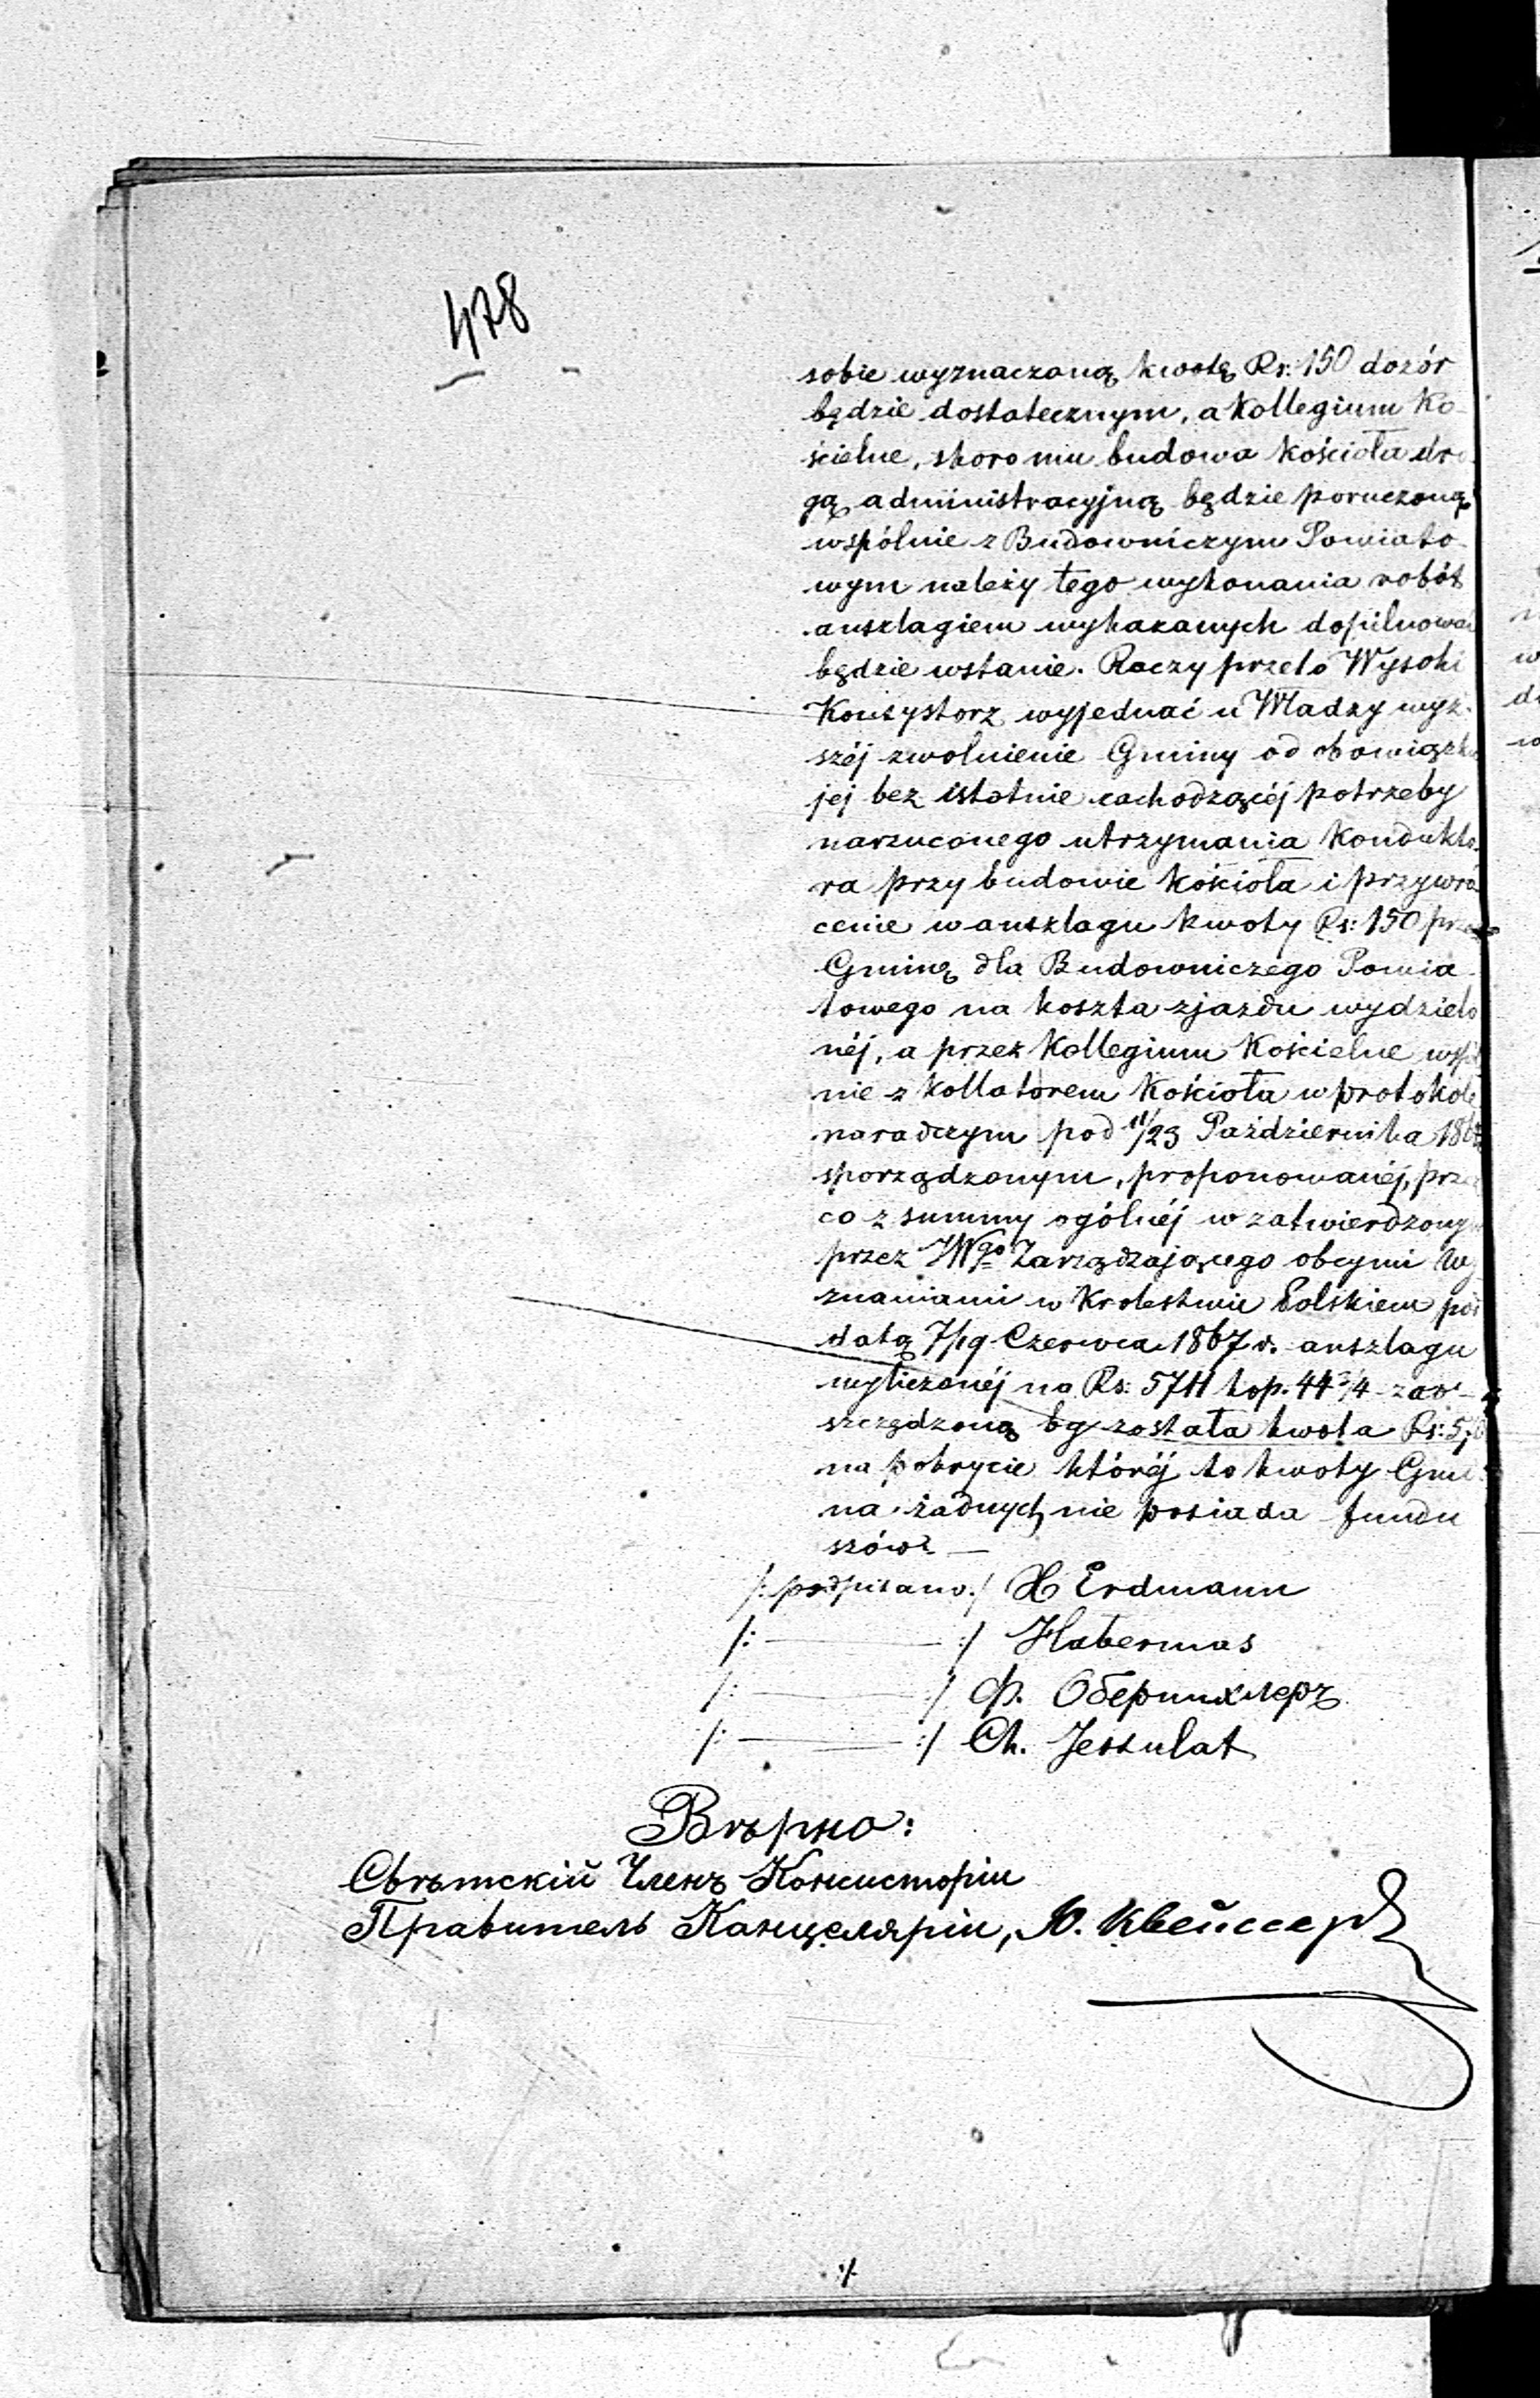 478
sobie wyznaczoną kwotę Rs: 150 dozór
będzie dostatecznym, a Kollegium Ko-
ścielne, skoro mu budowa Kościoła dro
gą administracyjną będzie poruczoną
wspólnie z Budowniczym Powiato-
wym należytego wykonania robót
anszlagiem wykazanych dopilnować
będzie wstanie. Raczy przeto Wysoki
Konsystorz wyjednać u Władzy wyż-
széj zwolnienie Gminy od obowiązku
jej bez istotnie zachodzącéj potrzeby
narzuconego utrzymania Kondukto-
ra przy budowie Kościoła i przywró
cenie w anszlagu kwoty Rs: 150 przez
Gminę dla Budowniczego Powia-
towego na koszta zjazdu wydzielo
néj, a przez Kollegium Kościelne wspól
nie z Kollatorem Kościoła w protokole
naradczym pod 11/23 Października 186
sporządzonym, proponowanéj, prze
co z summy ogólnéj w zatwierdzonym
przez JWgo Zarządzającego obcymi Wy
znaniami w Krolestwie Polskiem pod
datą 7/19 Czerwca 1867 r. anszlagu
wyliczonéj na Rs: 5711 kop. 44 3/4 zao-
szczędzoną by została kwota Rs: 5
na pokrycie któréj to kwoty Gmi
na żadnych nie posiada fundu
szów. —
/: podpisano :/ H Erdmann
/: — :/ Habermas
/: — :/ Ф. Оберпихлеръ
/: — :/ Ch. Jessulat
Вѣрно:
Свѣтскій Членъ Консисторіи
Правитель Канцеляріи, Ю. Квейссеръ
./.